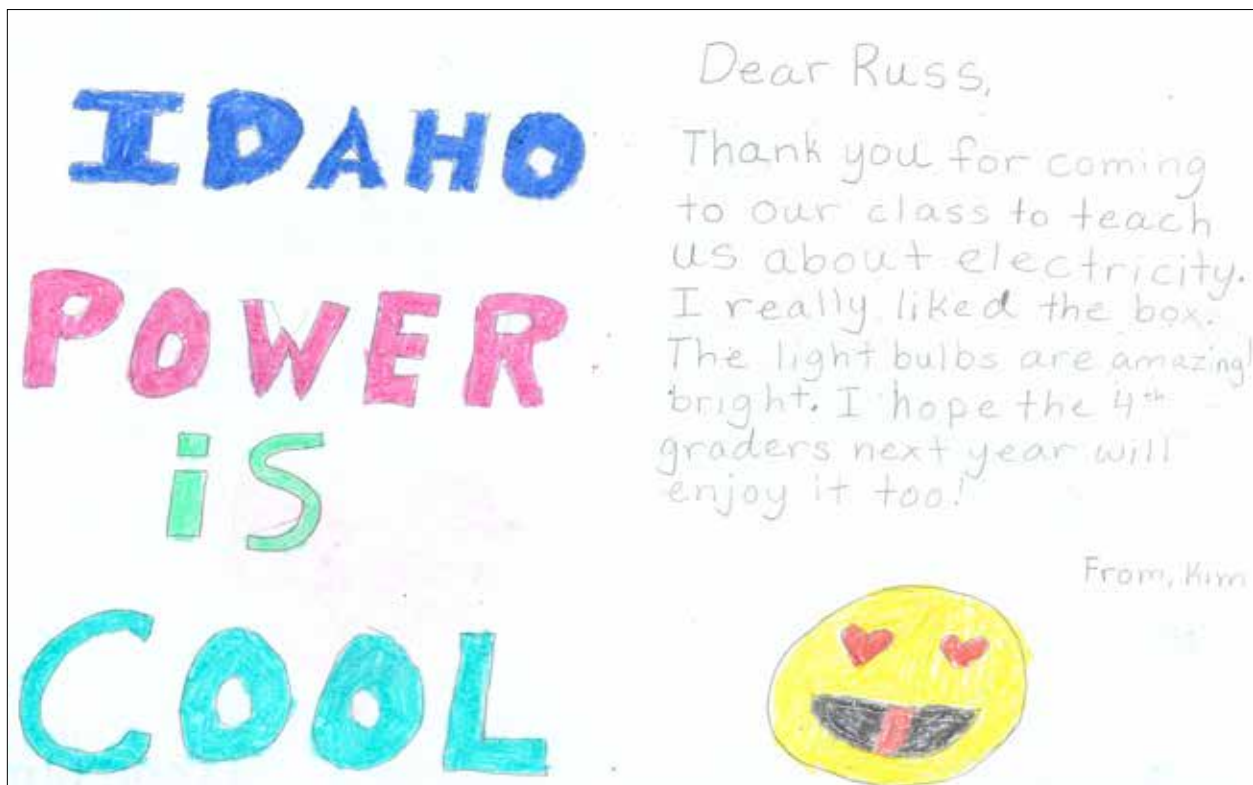 IDAHO
POWER
iS
COOL
Dear Russ,
Thank you for coming
to our class to teach
us about electricity.
I really liked the box.
The light bulbs are amazing!
bright. I hope the 4th
graders next year will
enjoy it too!
From, Kim